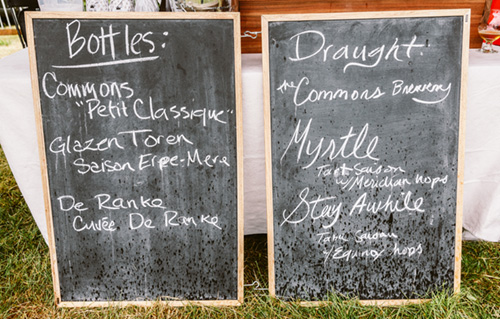 Bottles:
Commons
"Petit Classique"
Glazen Toren
Saison Erpe-Mere
De Ranke
Cuvée De Ranke
Draught:
the Commons Brewery
Myrtle
Tart Saison
w/Meridian hops
Stay Awhile
Table Saison
w/Equinox hops